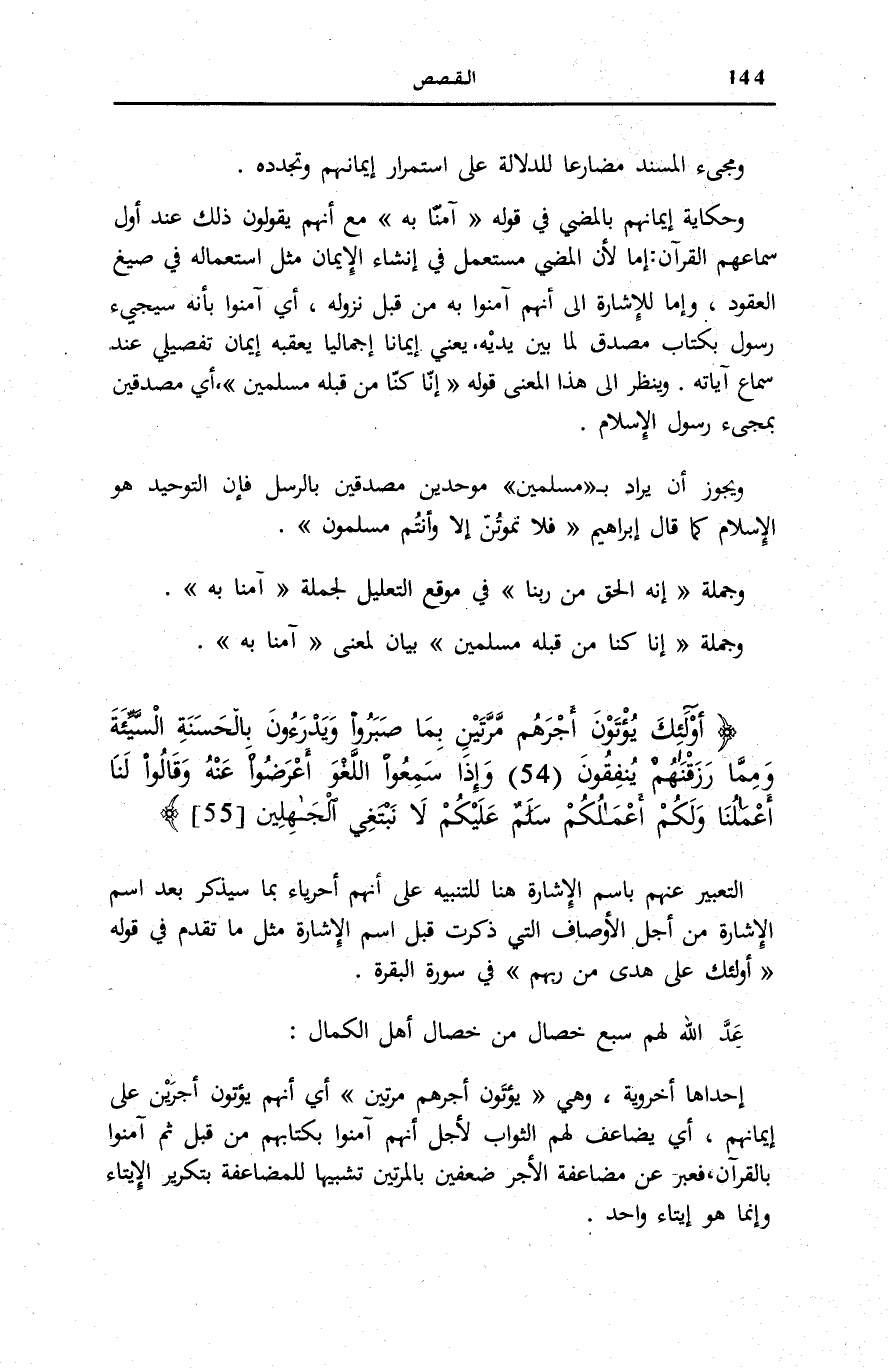 144 القصص
ومجيء المسند مضارعا للدلالة على استمرار إيمانهم وتجدده .
وحكاية إيمانهم بالمضي في قوله « آمنّا به » مع أنهم يقولون ذلك عند أول
سماعهم القرآن:إما لأن المضي مستعمل في إنشاء الإيمان مثل استعماله في صيغ
العقود ، وإما للإشارة الى أنهم آمنوا به من قبل نزوله ، أي آمنوا بأنه سيجيء
رسول بكتاب مصدق لما بين يديْه، يعني إيمانا إجماليا يعقبه إيمان تفصيلي عند
سماع آياته . وينظر الى هذا المعنى قوله « إنّا كنّا من قبله مسلمين »،أي مصدقين
بمجيء رسول الإسلام .
ويجوز أن يراد بـ«مسلمين» موحدين مصدقين بالرسل فإن التوحيد هو
الإسلام كما قال إبراهيم « فلا تموتُنّ إلا وأنتُم مسلمون » .
وجملة « إنه الحق من ربنا » في موقع التعليل لجملة « آمنا به » .
وجملة « إنا كنا من قبله مسلمين » بيان لمعنى « آمنا به » .
﴿ أُوْلَٰٓئِكَ يُؤْتَوْنَ أَجْرَهُم مَّرَّتَيْنِ بِمَا صَبَرُواْ وَيَدْرَءُونَ بِالْحَسَنَةِ الْسَّيِّئَةَ
وَمِمَّا رَزَقْنَٰهُمْ يُنفِقُونَ (54) وَإِذَا سَمِعُواْ اللَّغْوَ أَعْرَضُواْ عَنْهُ وَقَالُواْ لَنَا
أَعْمَٰلُنَا وَلَكُمْ أَعْمَٰلُكُمْ سَلَٰمٌ عَلَيْكُمْ لَا نَبْتَغِي ٱلْجَٰهِلِين [55] ﴾
التعبير عنهم باسم الإشارة هنا للتنبيه على أنهم أحرياء بما سيذكر بعد اسم
الإشارة من أجل الأوصاف التي ذكرت قبل اسم الإشارة مثل ما تقدم في قوله
« أولئك على هدى من ربهم » في سورة البقرة .
عَدَّ الله لهم سبع خصال من خصال أهل الكمال :
إحداها أخروية ، وهي « يؤتَون أجرهم مرتين » أي أنهم يؤتون أجرَيْن على
إيمانهم ، أي يضاعف لهم الثواب لأجل أنهم آمنوا بكتابهم من قبل ثم آمنوا
بالقرآن،فعبر عن مضاعفة الأجر ضعفين بالمرتين تشبيها للمضاعفة بتكرير الإيتاء
وإنما هو إيتاء واحد .